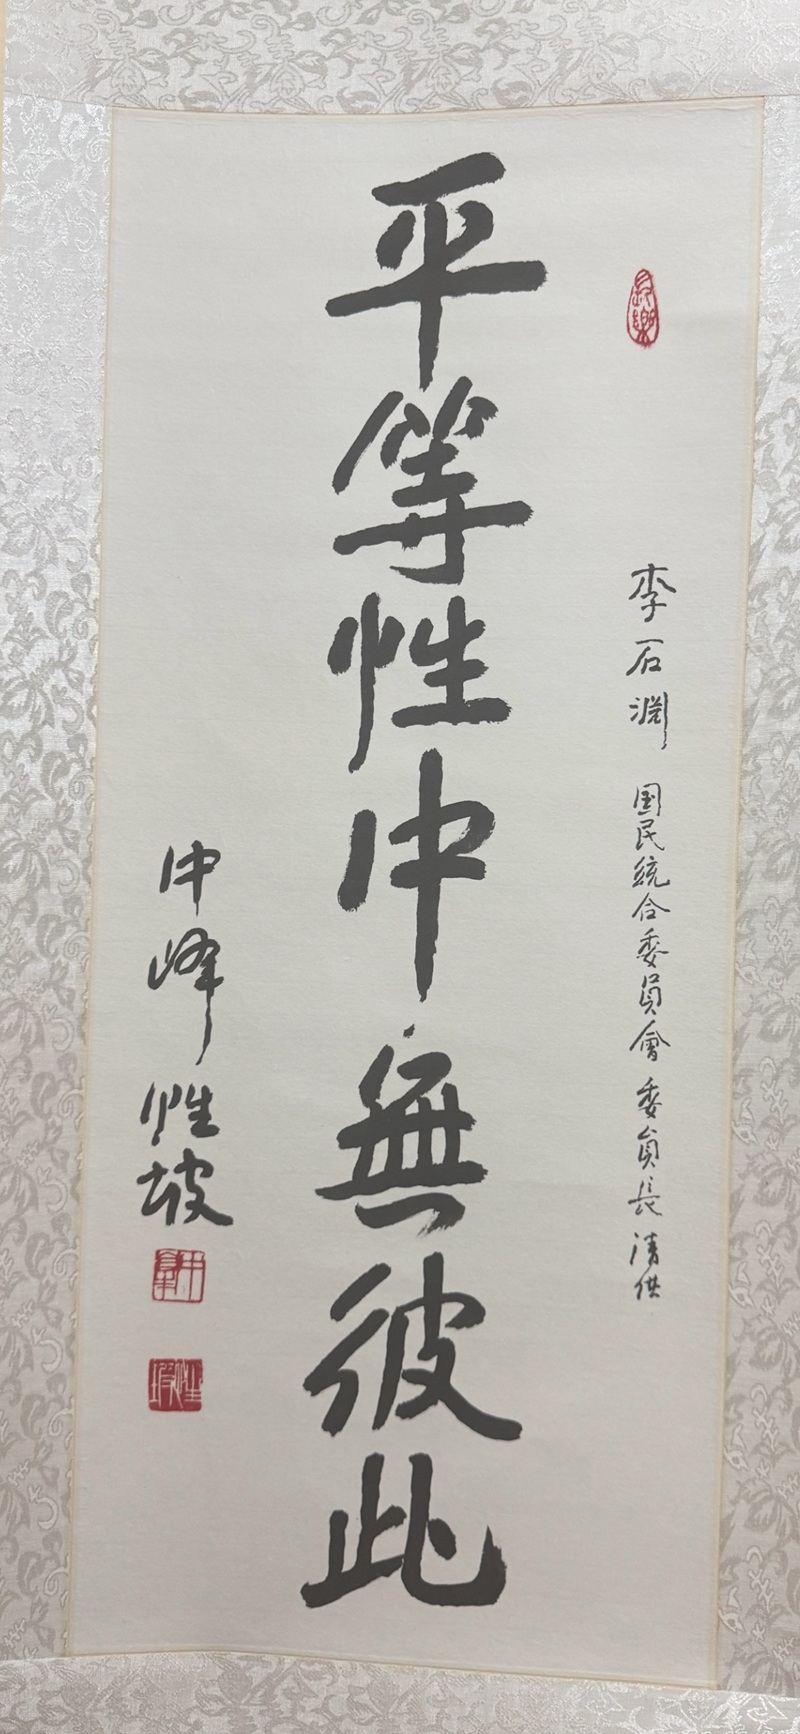 李石淵 国民統合委員會 委員長 清供
平等性中無彼此
中峰 性坡